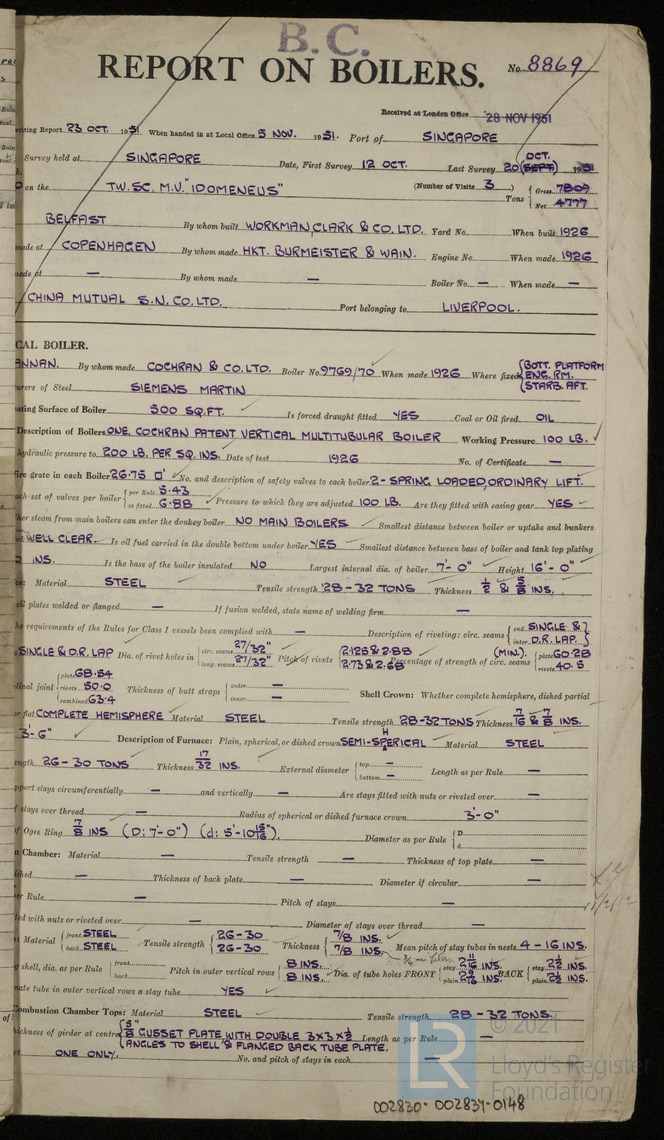 B.C.
REPORT ON BOILERS.
No. 8869
Received at London Office 28 NOV 1951
writing Report 23 OCT. 1951 When handed in at Local Office 5 NOV. 1951. Port of SINGAPORE
Survey held at SINGAPORE Date, First Survey 12 OCT. Last Survey 20 OCT. (SEPT) 1951
on the TW. SC. M.V. "IDOMENEUS" (Number of Visits 3) Tons { Gross 7809 Net 4777
BELFAST By whom built WORKMAN, CLARK & CO. LTD. Yard No. When built 1926
made at COPENHAGEN By whom made HKT. BURMEISTER & WAIN. Engine No. When made 1926
made at — By whom made — Boiler No. — When made —
CHINA MUTUAL S.N. CO. LTD. Port belonging to LIVERPOOL.
CAL BOILER.
ANNAN. By whom made COCHRAN & CO. LTD. Boiler No. 9769/70 When made 1926 Where fixed { BOTT. PLATFORM ENG. RM. STARB. AFT.
urers of Steel SIEMENS MARTIN
ating Surface of Boiler 500 SQ. FT. Is forced draught fitted YES Coal or Oil fired OIL
Description of Boilers ONE. COCHRAN PATENT VERTICAL MULTITUBULAR BOILER Working Pressure 100 LB.
hydraulic pressure to 200 LB. PER SQ. INS. Date of test 1926 No. of Certificate —
ire grate in each Boiler 26.75 □' No. and description of safety valves to each boiler 2 - SPRING LOADED, ORDINARY LIFT.
ach set of valves per boiler { per Rule 5.43 as fitted 6.88 Pressure to which they are adjusted 100 LB. Are they fitted with easing gear YES
her steam from main boilers can enter the donkey boiler NO MAIN BOILERS Smallest distance between boiler or uptake and bunkers
WELL CLEAR. Is oil fuel carried in the double bottom under boiler YES Smallest distance between base of boiler and tank top plating
INS. Is the base of the boiler insulated NO Largest internal dia. of boiler 7'-0" Height 16'-0"
Material STEEL Tensile strength 28-32 TONS Thickness 1/2 & 5/8 INS.
ell plates welded or flanged — If fusion welded, state name of welding firm —
he requirements of the Rules for Class I vessels been complied with — Description of riveting: circ. seams { end SINGLE & inter. D.R. LAP. }
SINGLE & D.R. LAP Dia. of rivet holes in { circ. seams 27/32" long. seams 27/32" Pitch of rivets { 2.125 & 2.88 2.73 & 2.68 Percentage of strength of circ. seams (MIN.) { plate 60.28 rivets 40.5
dinal joint { plate 68.54 rivets 50.0 combined 63.4 Thickness of butt straps { outer — inner — Shell Crown: Whether complete hemisphere, dished partial
or flat COMPLETE HEMISPHERE Material STEEL Tensile strength 28-32 TONS Thickness 7/16 & 7/8 INS.
3'-6" Description of Furnace: Plain, spherical, or dished crown SEMI-SPHERICAL Material STEEL
ength 26-30 TONS Thickness 17/32 INS. External diameter { top — bottom — Length as per Rule —
pport stays circumferentially — and vertically — Are stays fitted with nuts or riveted over —
f stays over thread — Radius of spherical or dished furnace crown 3'-0"
f Ogee Ring 7/8 INS (D: 7'-0") (d: 5'-10 15/16"). Diameter as per Rule { D d
n Chamber: Material — Tensile strength — Thickness of top plate —
ished — Thickness of back plate — Diameter if circular —
r Rule — Pitch of stays —
ted with nuts or riveted over — Diameter of stays over thread —
Material { front STEEL back STEEL Tensile strength { 26-30 26-30 Thickness { 7/8 INS. 7/8 INS. Mean pitch of stay tubes in nests 4-16 INS.
g shell, dia. as per Rule { front back Pitch in outer vertical rows { 8 INS. 8 INS. Dia. of tube holes FRONT { stay 2 11/16 INS. plain 2 9/16 INS. BACK { stay 2 1/2 INS. plain 2 1/2 INS.
nate tube in outer vertical rows a stay tube YES
Combustion Chamber Tops: Material STEEL Tensile strength 28-32 TONS.
hickness of girder at centre { 5/8" GUSSET PLATE WITH DOUBLE 3X3X1/2 Length as per Rule —
ANGLES TO SHELL & FLANGED BACK TUBE PLATE.
ONE ONLY. No. and pitch of stays in each —
LR
© 2021
Lloyd's Register
Foundation
002830-002837-0148